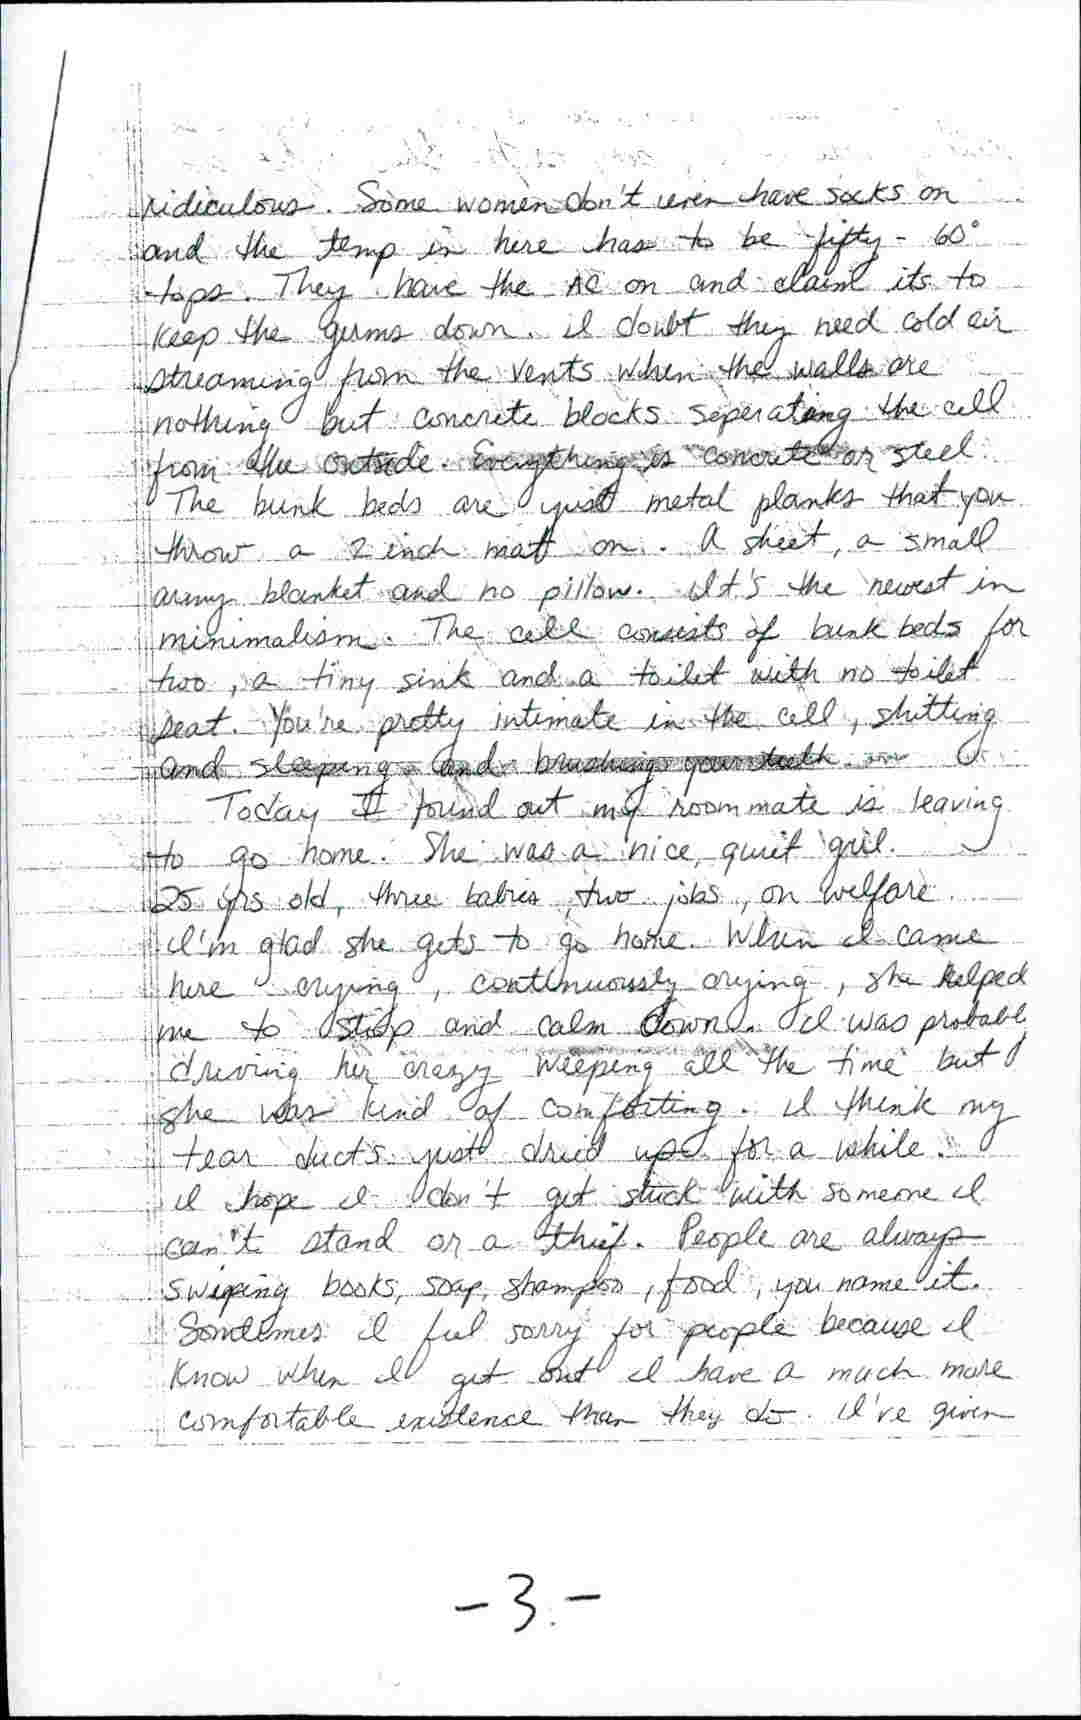 ridiculous. Some women don't even have socks on
and the temp in here has to be fifty - 60°
tops. They have the AC on and claim its to
keep the germs down. I doubt they need cold air
streaming from the vents when the walls are
nothing but concrete blocks seperating the cell
from the outside. Everything is concrete or steel.
The bunk beds are just metal planks that you
throw a 2 inch matt on. A sheet, a small
army blanket and no pillow. It's the newest in
minimalism. The cell consists of bunk beds for
two, a tiny sink and a toilet with no toilet
seat. You're pretty intimate in the cell, shitting
and sleeping and brushing your teeth.
Today I found out my roommate is leaving
to go home. She was a nice, quiet girl.
25 yrs old, three babies, two jobs, on welfare.
I'm glad she gets to go home. When I came
here crying, continuously crying, she helped
me to stop and calm down. I was probably
driving her crazy weeping all the time but
she was kind of comforting. I think my
tear ducts just dried up for a while.
I hope I don't get stuck with someone I
can't stand or a thief. People are always
swiping books, soap, shampoo, food, you name it.
Sometimes I feel sorry for people because I
know when I get out I have a much more
comfortable existence than they do. I've given
-3.-